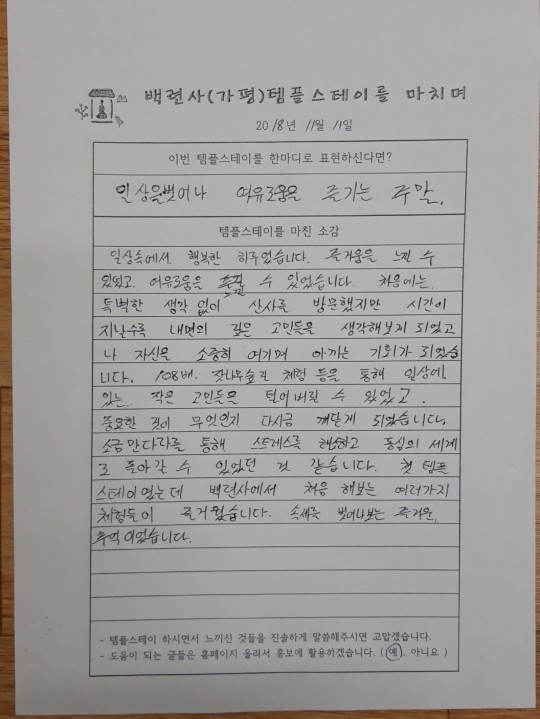 백련사(가평)템플스테이를 마치며
2018년 11월 11일
이번 템플스테이를 한마디로 표현하신다면?
일상을벗어나 여유로움을 즐기는 주말.
템플스테이를 마친 소감
일상속에서 행복한 하루였습니다. 즐거움을 느낄 수
있었고. 여유로움을 느낄 수 있었습니다. 처음에는,
특별한 생각 없이 산사를 방문했지만 시간이
지날수록 내면의 깊은 고민들을 생각해보게 되었고
나 자신을 소중히 여기며 아끼는 기회가 되었습
니다. 108배. 잣나무숲길 체험 등을 통해 일상에
있는. 작은 고민들을 털어버릴 수 있었고.
중요한 것이 무엇인지 다시금 깨닫게 되었습니다.
소금만다라를 통해 스트레스를 해소하고 동심의 세계
로 돌아갈 수 있었던 것 같습니다. 첫 템플
스테이였는데 백련사에서 처음 해보는 여러가지
체험들이 즐거웠습니다. 속세를 벗어나보는 즐거운,
추억이었습니다.
- 템플스테이 하시면서 느끼신 것들을 진솔하게 말씀해주시면 고맙겠습니다.
- 도움이 되는 글들은 홈페이지 올려서 홍보에 활용하겠습니다. ( 예. 아니요 )